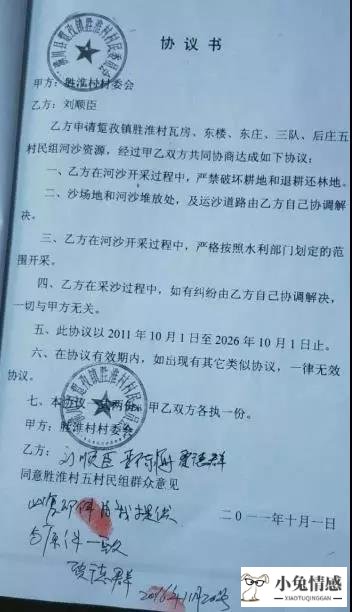 协议书
甲方：胜淮村村委会
乙方：刘顺臣
乙方申请寬孜镇胜淮村瓦房、东楼、东庄、三队、后庄五
村民组河沙资源，经过甲乙双方共同协商达成如下协议：
一、乙方在河沙开采过程中，严禁破坏耕地和退耕还林地。
二、沙场地和河沙堆放处，及运沙道路由乙方自己协调解
决。
三、乙方在河沙开采过程中，严格按照水利部门划定的范
围开采。
四、乙方在采沙过程中，如有纠纷由乙方自己协调解决，
一切与甲方无关。
五、此协议以2011年10月1日至2026年10月1日止。
六、在协议有效期内，如出现有其它类似协议，一律无效
协议。
七、本协议一式两份，甲乙双方各执一份。
甲方：胜淮村村委会
乙方：刘顺臣
同意胜淮村五村民组群众意见
二〇一一年十月一日
与原件一致
2016年11月20号
小兔情感
WWW.XIAOTUQINGGAN.COM